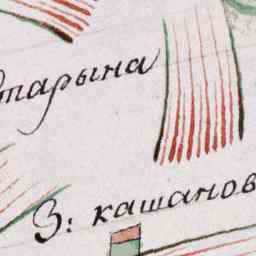 старына
З: кашанов